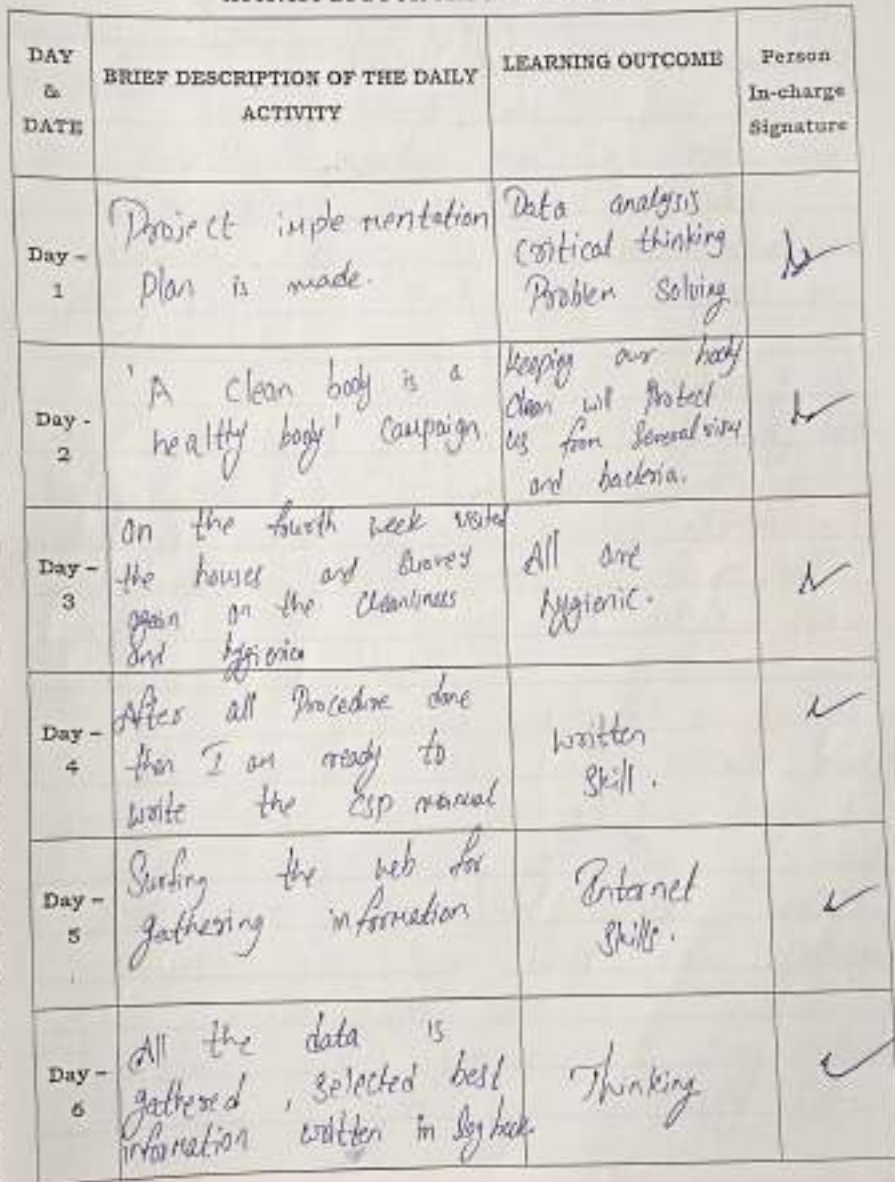 DAY
&
DATE
BRIEF DESCRIPTION OF THE DAILY
ACTIVITY
LEARNING OUTCOME
Person
In-charge
Signature
Day -
1
Project implementation
Plan is made.
Data analysis
Critical thinking
Problem Solving
Day -
2
'A clean body is a
healthy body' Campaign
Keeping our body
clean will Protect
us from Several
and bacteria.
Day -
3
on the fourth week visited
the houses and Survey
again on the Cleanliness
and
All are
hygienic.
Day -
4
After all Procedure done
then I am ready to
write the CSP manual
written
Skill.
Day -
5
Surfing the web for
gathering information
Internet
Skills.
Day -
6
All the data is
gathered, selected best
information written in log book.
Thinking